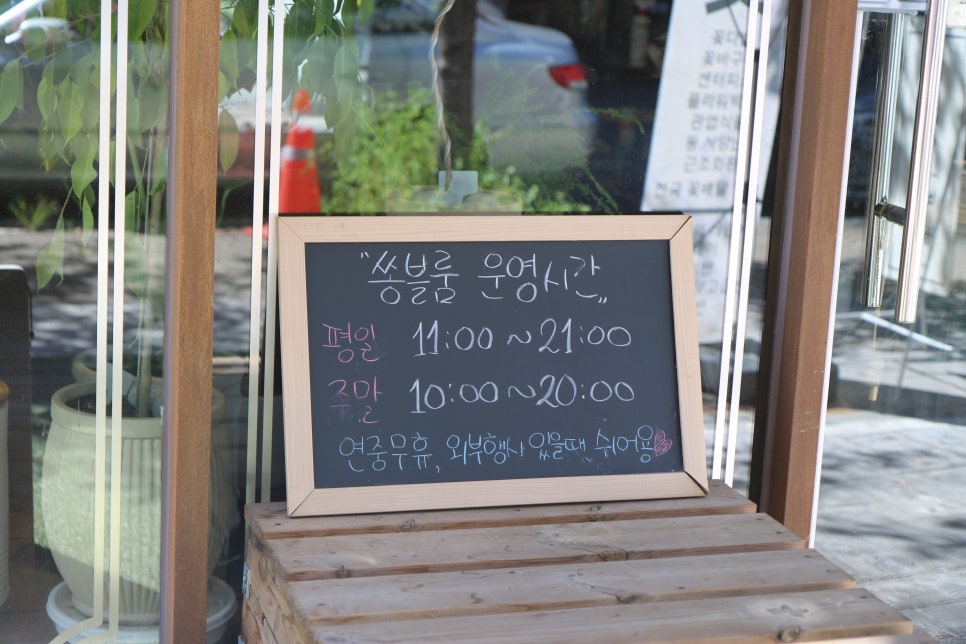 "쏭블룸 운영시간"
평일 11:00 ~ 21:00
주말 10:00 ~ 20:00
연중무휴, 외부행사 있을때 쉬어용
꽃다
꽃바구
센터피
플라워박
관엽식물
동.서양란
근조화환
전국 꽃배달